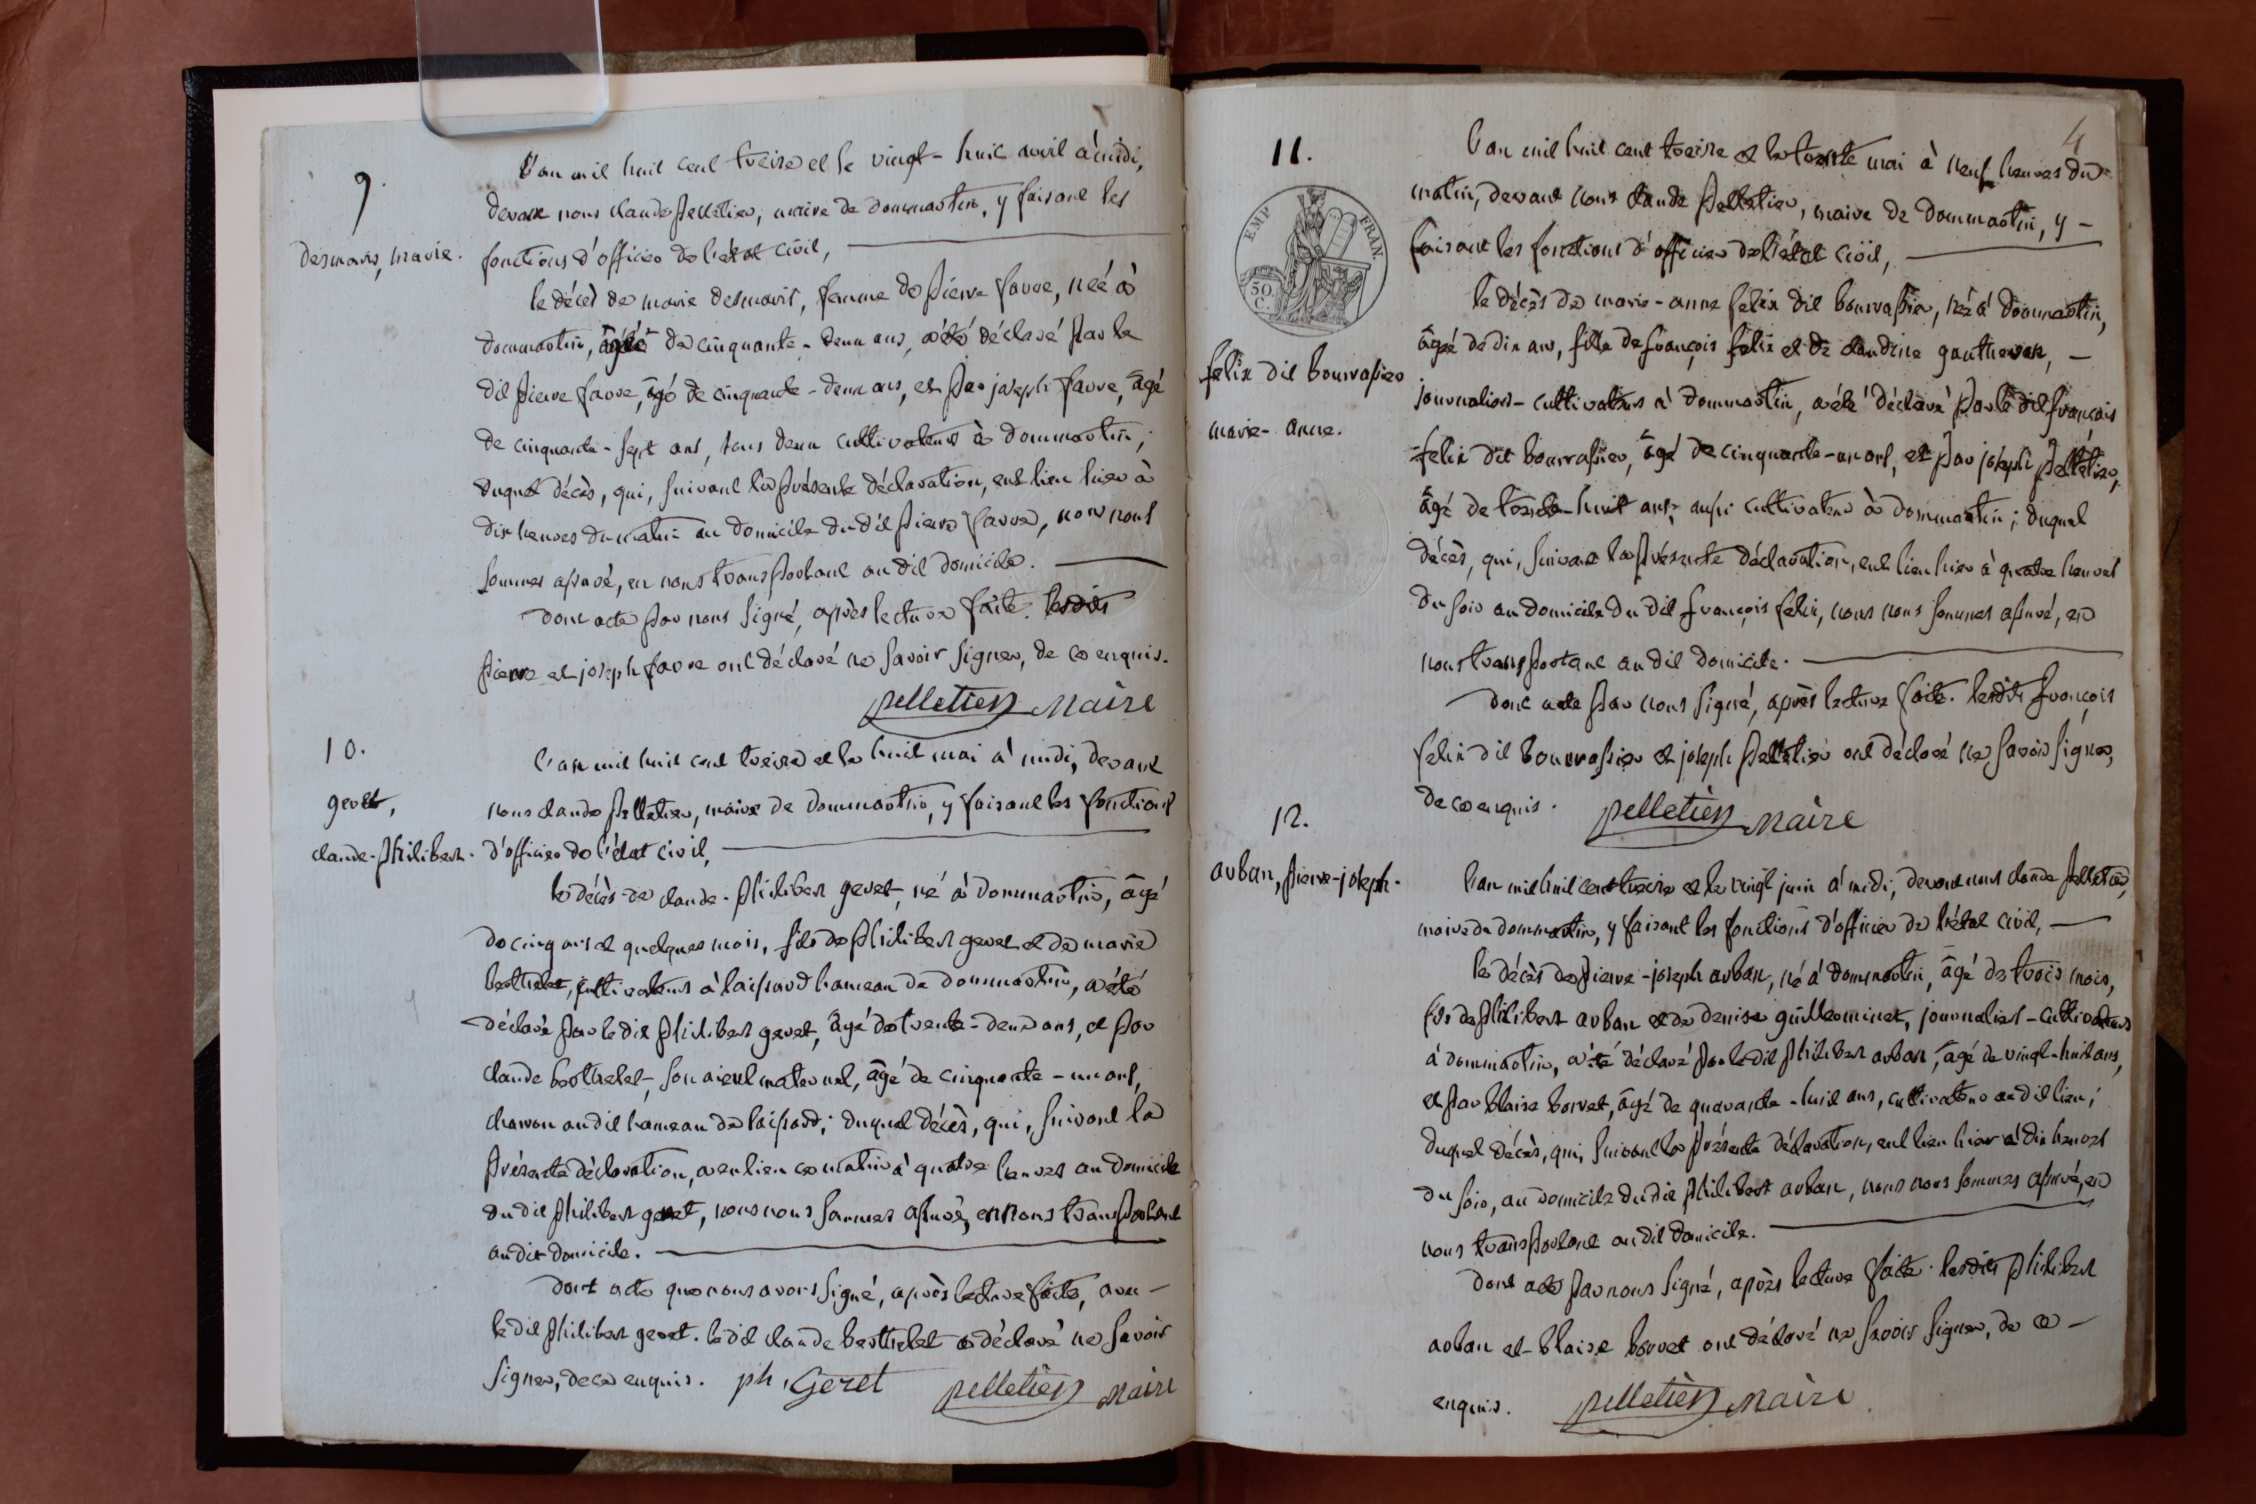 9.
desmaris, marie.
L'an mil huit cent treize et le vingt-huit avril à midi,
devant nous claude pelletier, maire de dommartin, y faisant les
fonctions d'officier de l'état civil,
le décès de marie desmaris, femme de pierre favre, née à
dommartin, âgée de cinquante-deux ans, a été déclaré par le
dit pierre favre, âgé de cinquante-deux ans, et par joseph favre, âgé
de cinquante-sept ans, tous deux cultivateurs à dommartin;
duquel décès, qui, suivant la présente déclaration, eut lieu hier à
dix heures du matin au domicile du dit pierre favre, nous nous
sommes assuré, en nous transportant au dit domicile.
dont acte par nous signé, après lecture faite. lesdits
pierre et joseph favre ont déclaré ne savoir signer, de ce enquis.
pelletier maire
10.
geret,
claude-philibert.
l'an mil huit cent treize et le huit mai à midi, devant
nous claude pelletier, maire de dommartin, y faisant les fonctions
d'officier de l'état civil,
le décès de claude-philibert geret, né à dommartin, âgé
de cinq ans et quelques mois, fils de philibert geret et de marie
berthelet, cultivateurs à laissard hameau de dommartin, a été
déclaré par le dit philibert geret, âgé de trente-deux ans, et par
claude berthelet, son aieul maternel, âgé de cinquante-un ans,
charon au dit hameau de laissard; duquel décès, qui, suivant la
présente déclaration, a eu lieu ce matin à quatre heures au domicile
du dit philibert geret, nous nous sommes assuré, en nous transportant
au dit domicile.
dont acte que nous avons signé, après lecture faite, avec
le dit philibert geret. le dit claude berthelet a déclaré ne savoir
signer, de ce enquis. ph. Geret pelletier maire
4
11.
EMP. FRAN.
50 C.
felix dit bourrassier
marie-anne.
L'an mil huit cent treize et le trente mai à neuf heures du
matin, devant nous claude pelletier, maire de dommartin, y
faisant les fonctions d'officier de l'état civil,
le décès de marie-anne felix dit bourrassier, née à dommartin,
âgée de dix ans, fille de françois felix et de claudine gautheron,
journaliers-cultivateurs à dommartin, a été déclaré par le dit françois
felix dit bourrassier, âgé de cinquante-un ans, et par joseph pelletier,
âgé de trente-huit ans, aussi cultivateur à dommartin; duquel
décès, qui, suivant la présente déclaration, eut lieu hier à quatre heures
du soir au domicile du dit françois felix, nous nous sommes assuré, en
nous transportant au dit domicile.
dont acte par nous signé, après lecture faite. lesdits françois
felix dit bourrassier et joseph pelletier ont déclaré ne savoir signer,
de ce enquis. pelletier maire
12.
arban, pierre-joseph.
L'an mil huit cent treize et le vingt juin à midi, devant nous claude pelletier,
maire de dommartin, y faisant les fonctions d'officier de l'état civil,
le décès de pierre-joseph arban, né à dommartin, âgé de trois mois,
fils de philibert arban et de denise guilleminet, journaliers-cultivateurs
à dommartin, a été déclaré par le dit philibert arban, âgé de vingt-huit ans,
et par blaise borvet, âgé de quarante-huit ans, cultivateur au dit lieu;
duquel décès, qui, suivant la présente déclaration, eut lieu hier à dix heures
du soir, au domicile du dit philibert arban, nous nous sommes assuré, en
nous transportant au dit domicile.
dont acte par nous signé, après lecture faite. lesdits philibert
arban et blaise borvet ont déclaré ne savoir signer, de ce
enquis. pelletier maire